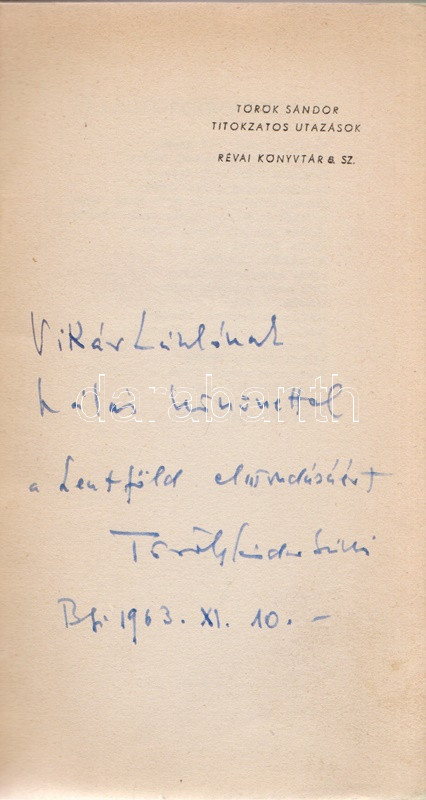 TÖRÖK SÁNDOR
TITOKZATOS UTAZÁSOK
RÉVAI KÖNYVTÁR 8. SZ.
Vikár Lászlónak
hálás köszönettel
darabanth
a Szentföld elmondásáért
Török Sándor
Bp. 1963. XI. 10. –